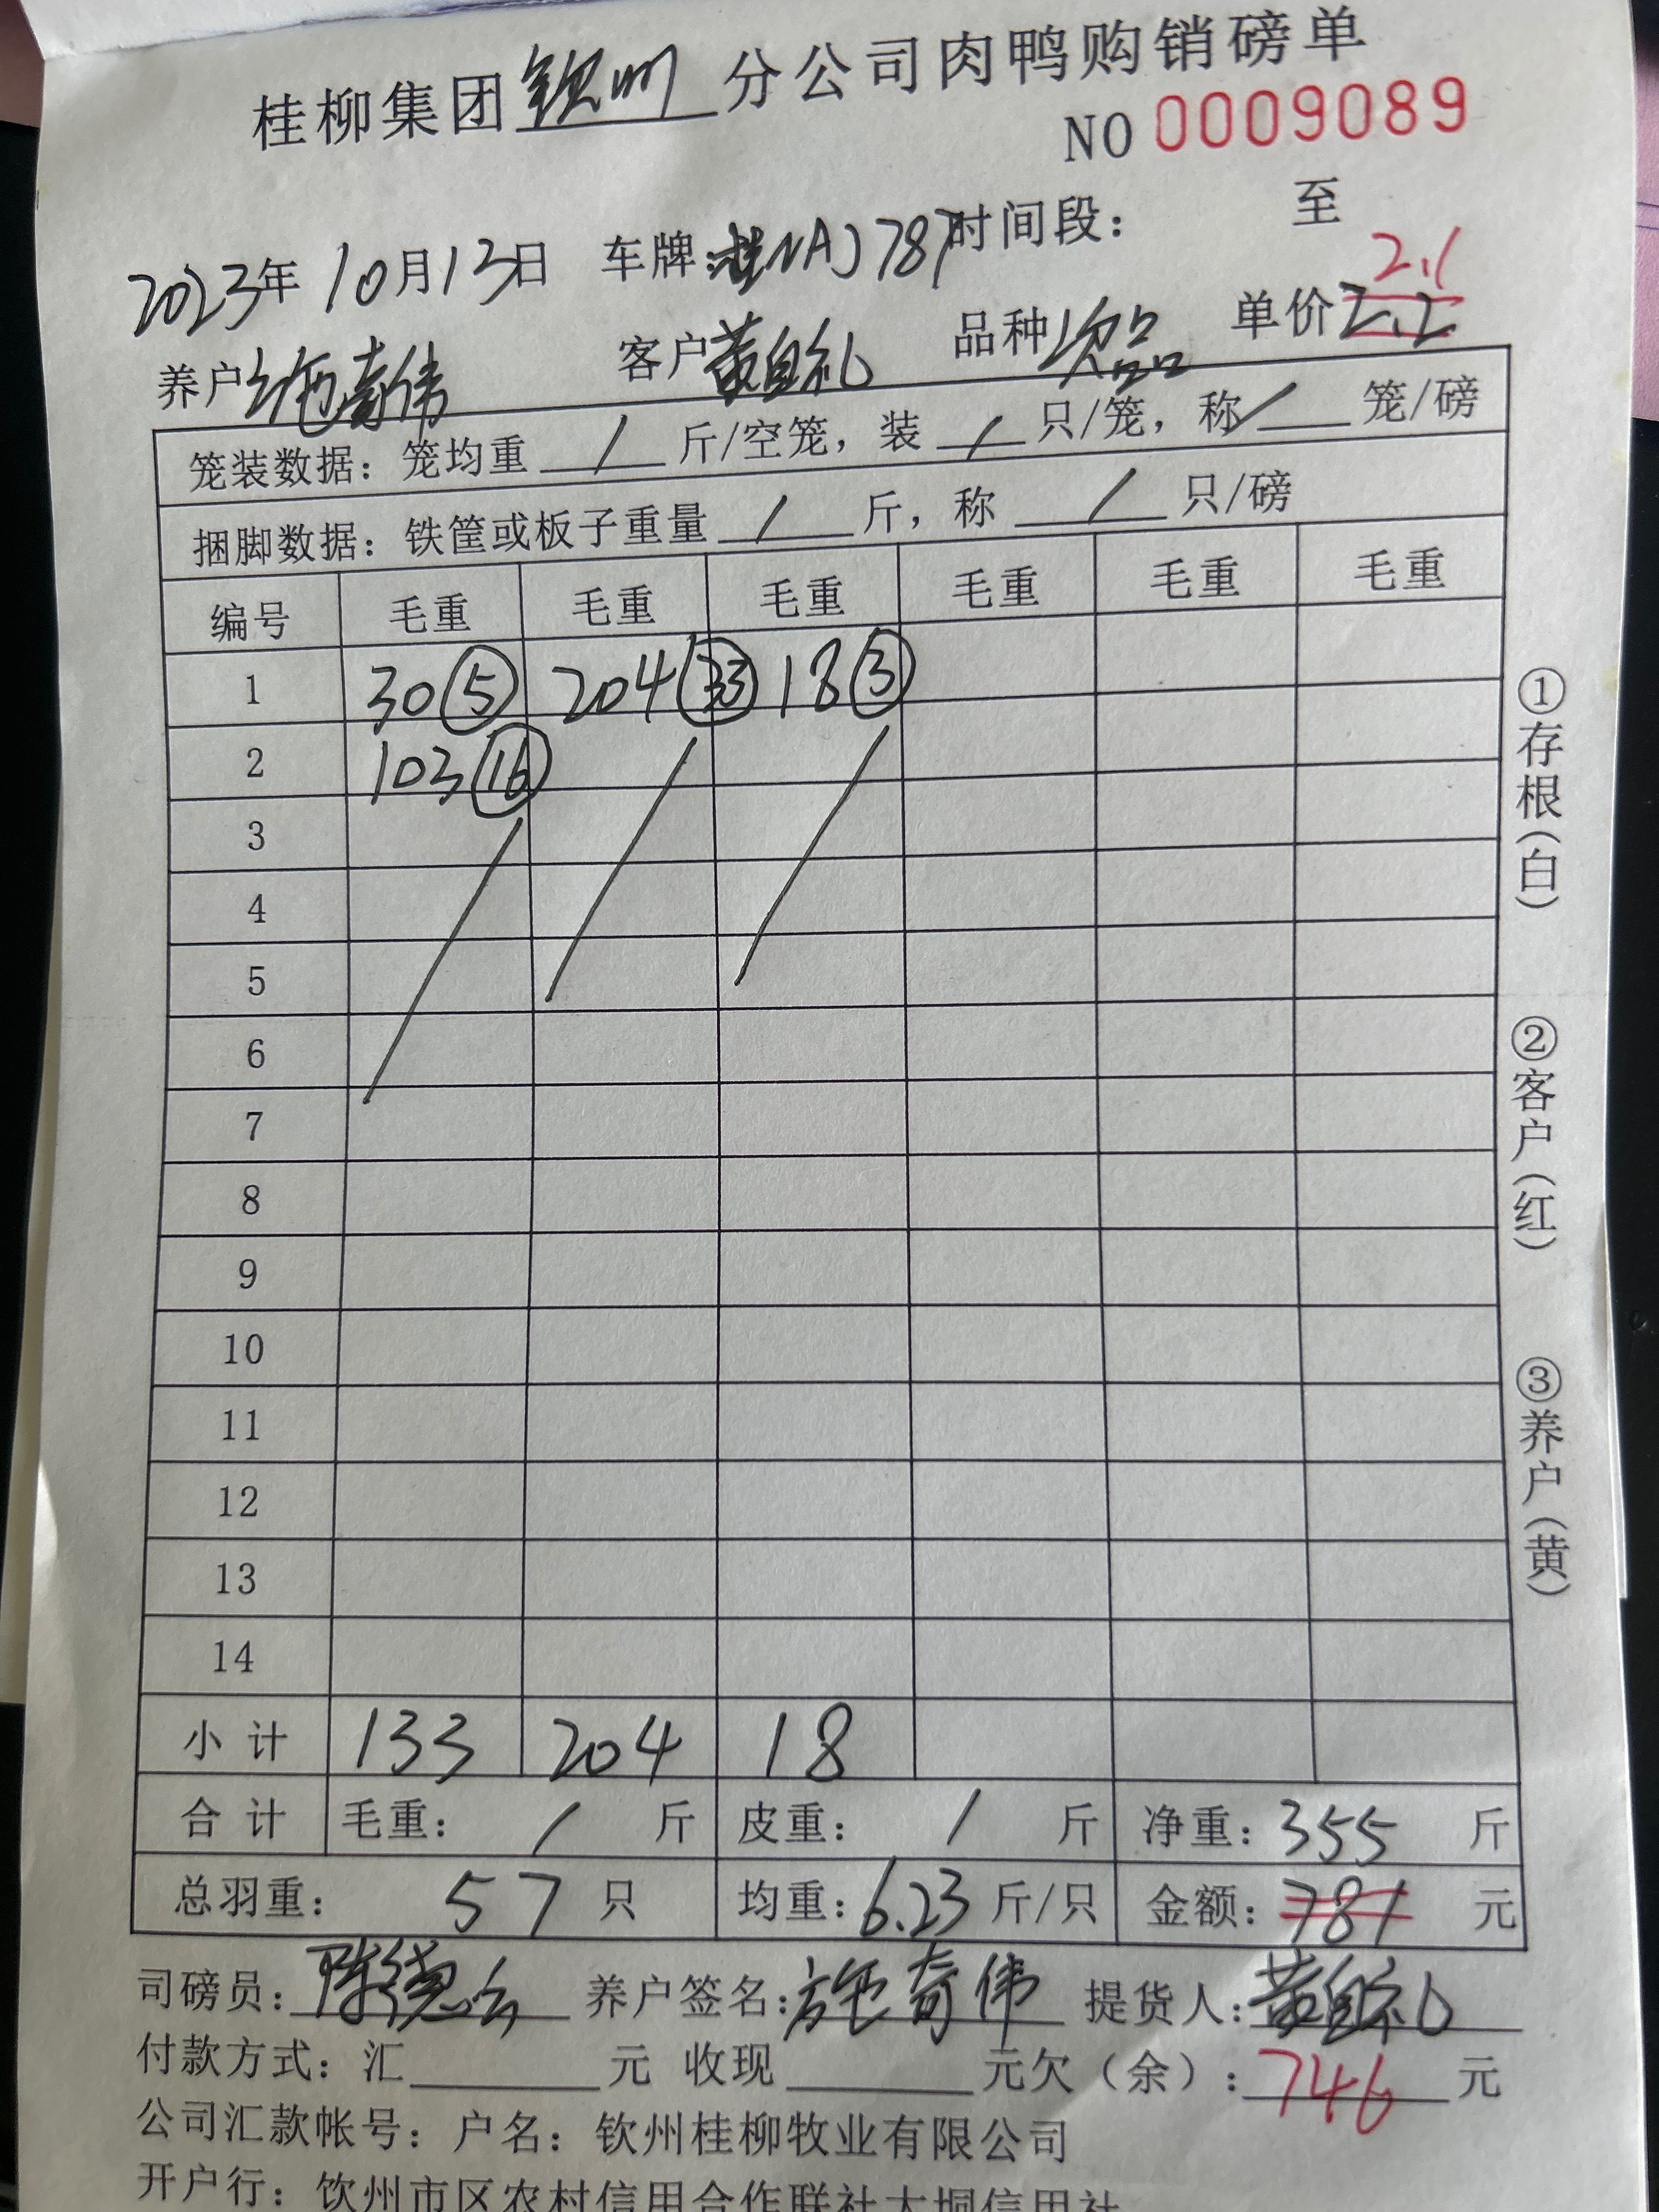 桂柳集团 钦州 分公司肉鸭购销磅单
NO 0009089
2023年 10月13日 车牌:桂NAJ787 时间段: 至
2.1
养户 施奇伟 客户 黄自礼 品种 次品 单价 2.2
笼装数据: 笼均重 / 斤/空笼, 装 / 只/笼, 称 / 笼/磅
捆脚数据: 铁筐或板子重量 / 斤, 称 / 只/磅
编号 毛重 毛重 毛重 毛重 毛重 毛重
1 30 ⑤ 204 ㉝ 18 ③
2 103 ⑯
3
4
5
6
7
8
9
10
11
12
13
14
小计 133 204 18
合计 毛重: / 斤 皮重: / 斤 净重: 355 斤
总羽重: 57 只 均重: 6.23 斤/只 金额: 781 元
司磅员: 陈德云 养户签名: 施奇伟 提货人: 黄自礼
付款方式: 汇 元 收现 元欠(余): 746 元
公司汇款帐号: 户名: 钦州桂柳牧业有限公司
开户行: 钦州市区农村信用合作联社大垌信用社
①存根(白)
②客户(红)
③养户(黄)